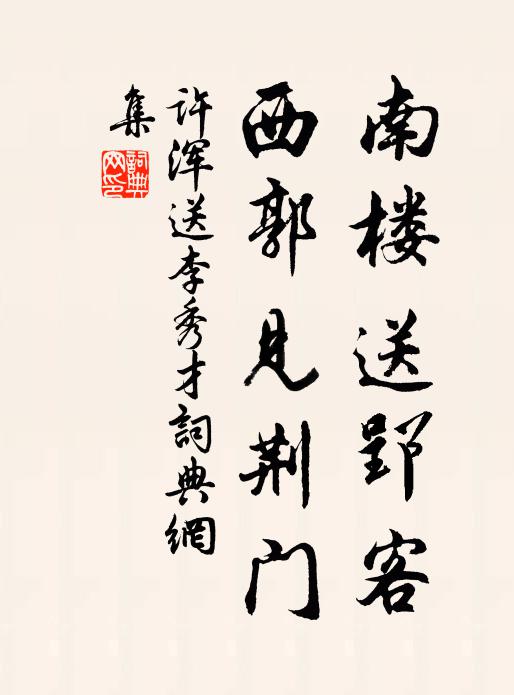 南楼送郢客
西郭见荆门
许浑送李秀才詞典網
集
詞典网印